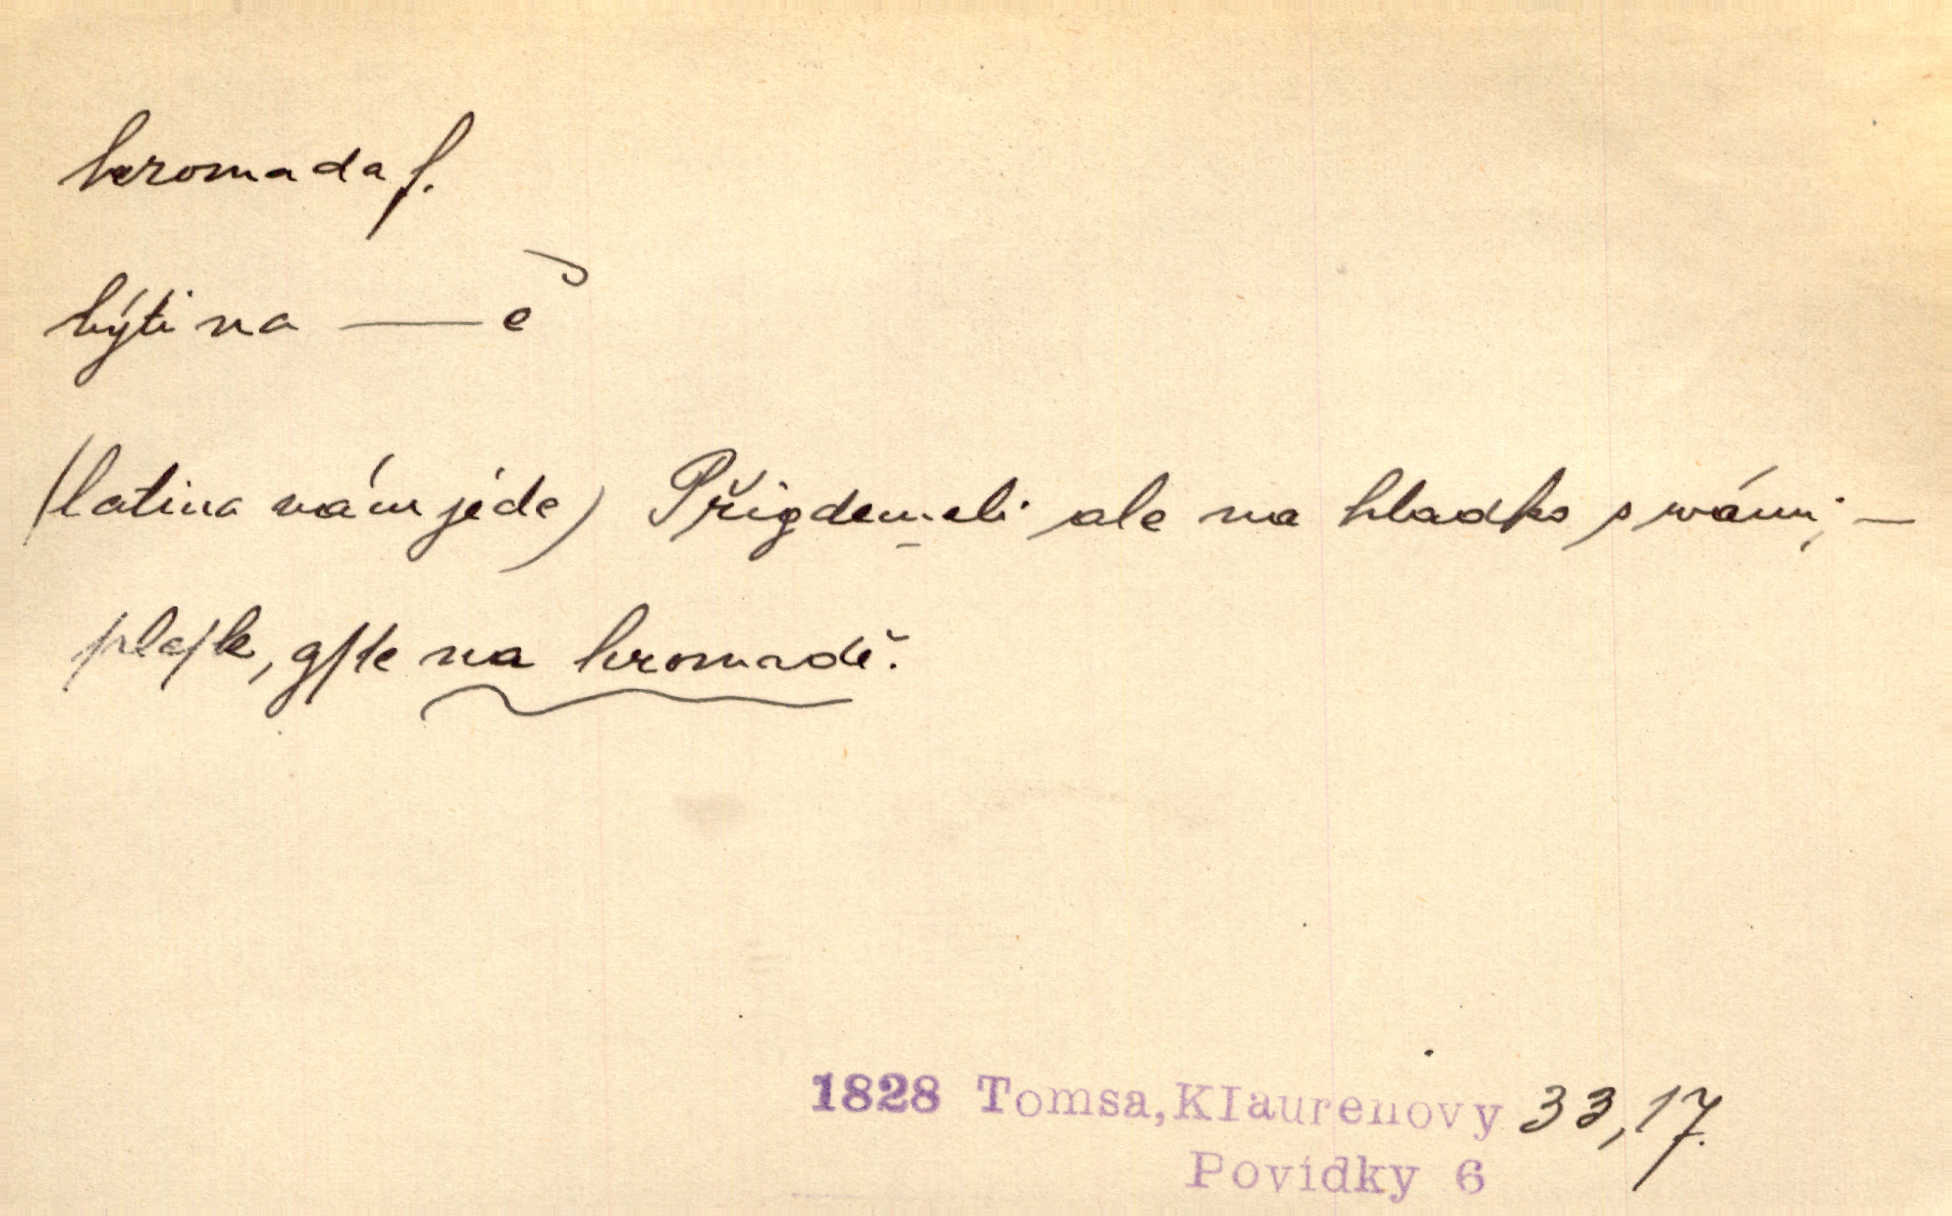 hromada f.
býti na — ě
(latina vám jide) Přigdem-li ale na hladko s wámi, —
plesk, gste na hromadě.
1828 Tomsa, Klaurenovy 33,17.
Povídky 6